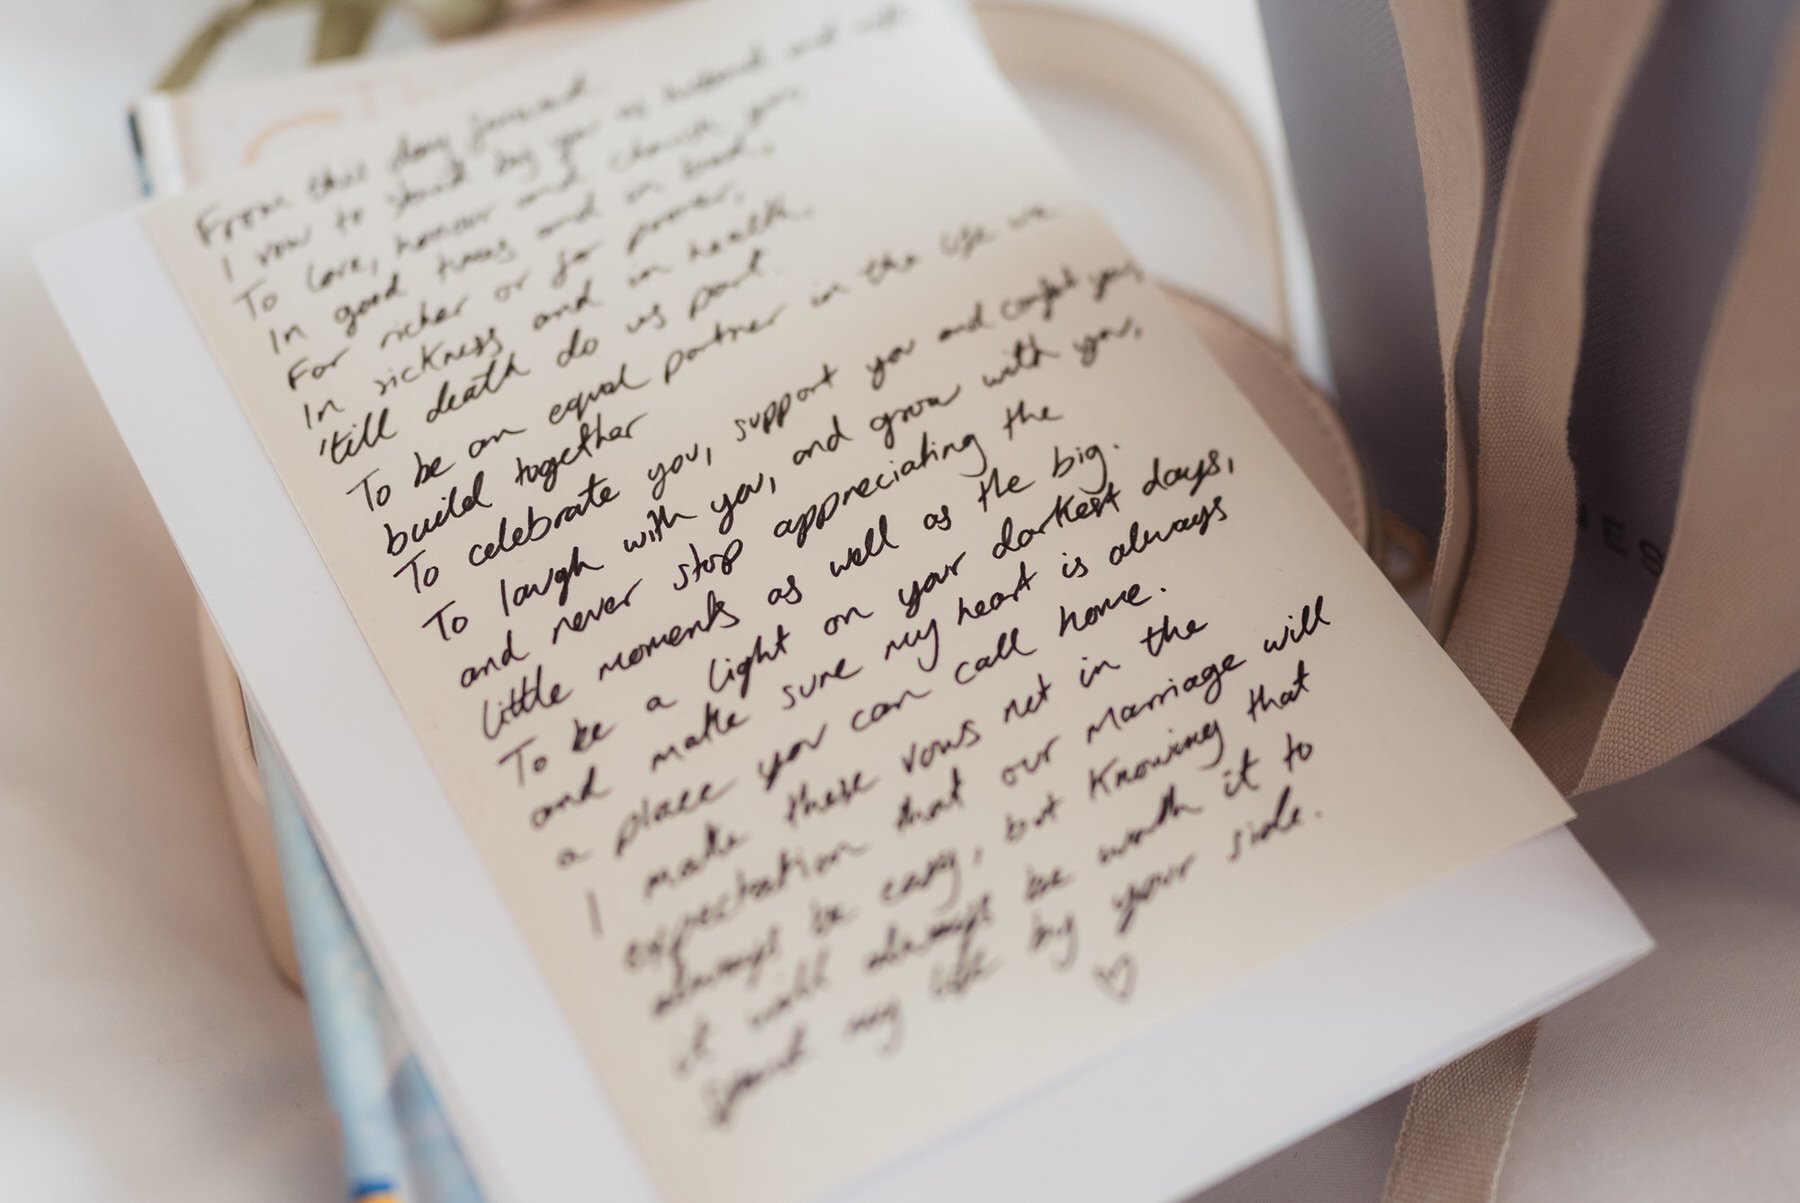 From this day forward.
I vow to stand by you as husband and wife
To love, honour and cherish you,
In good times and in bad,
For richer or for poorer,
In sickness and in health.
'till death do us part.
To be an equal partner in the life we
build together
To celebrate you, support you and comfort you,
To laugh with you, and grow with you,
and never stop appreciating the
little moments as well as the big.
To be a light on your darkest days,
and make sure my heart is always
a place you can call home.
I make these vows not in the
expectation that our marriage will
always be easy, but knowing that
it will always be worth it to
spend my life by your side.